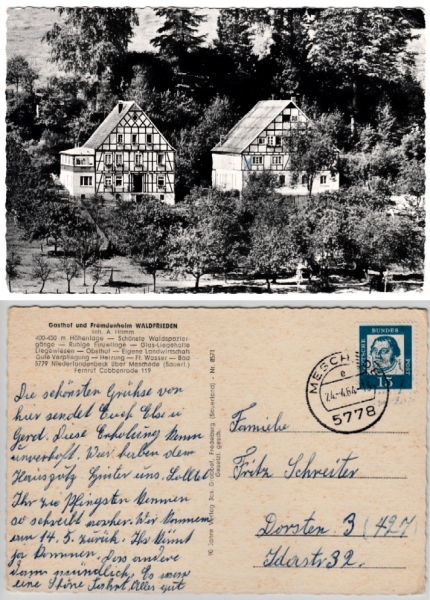 Gasthof und Fremdenheim WALDFRIEDEN
Inh. A. Hömm
400-450 m Höhenlage — Schönste Waldspazier-
gänge — Ruhige Einzellage — Glas-Liegehalle
Liegewiesen — Obsthof — Eigene Landwirtschaft
Gute Verpflegung — Heizung — Fl. Wasser — Bad
5779 Niederlandenbeck über Meschede (Sauerl.)
Fernruf Cobbenrode 119
Die schönsten Grüße von
hier sendet Euch Else u
Gerd. Diese Erholung kam
unverhofft. Wir haben dem
hinter uns. Solltet
Ihr zu Pfingsten kommen
so schreibt vorher. Wir kommen
am 14.5. zurück. Ihr könnt
ja kommen. Das andere
dann mündlich. Es war
eine schöne Fahrt. Alles gut
90 Jahre Verlag Jos. Grobbel, Fredeburg (Sauerland) - Nr. 8571
Gesetzl. gesch.
MESCHEDE
e
24.-4.64
5778
DEUTSCHE BUNDESPOST
15
Familie
Fritz Schreiter
Dorsten 3 (427)
Idastr 32.